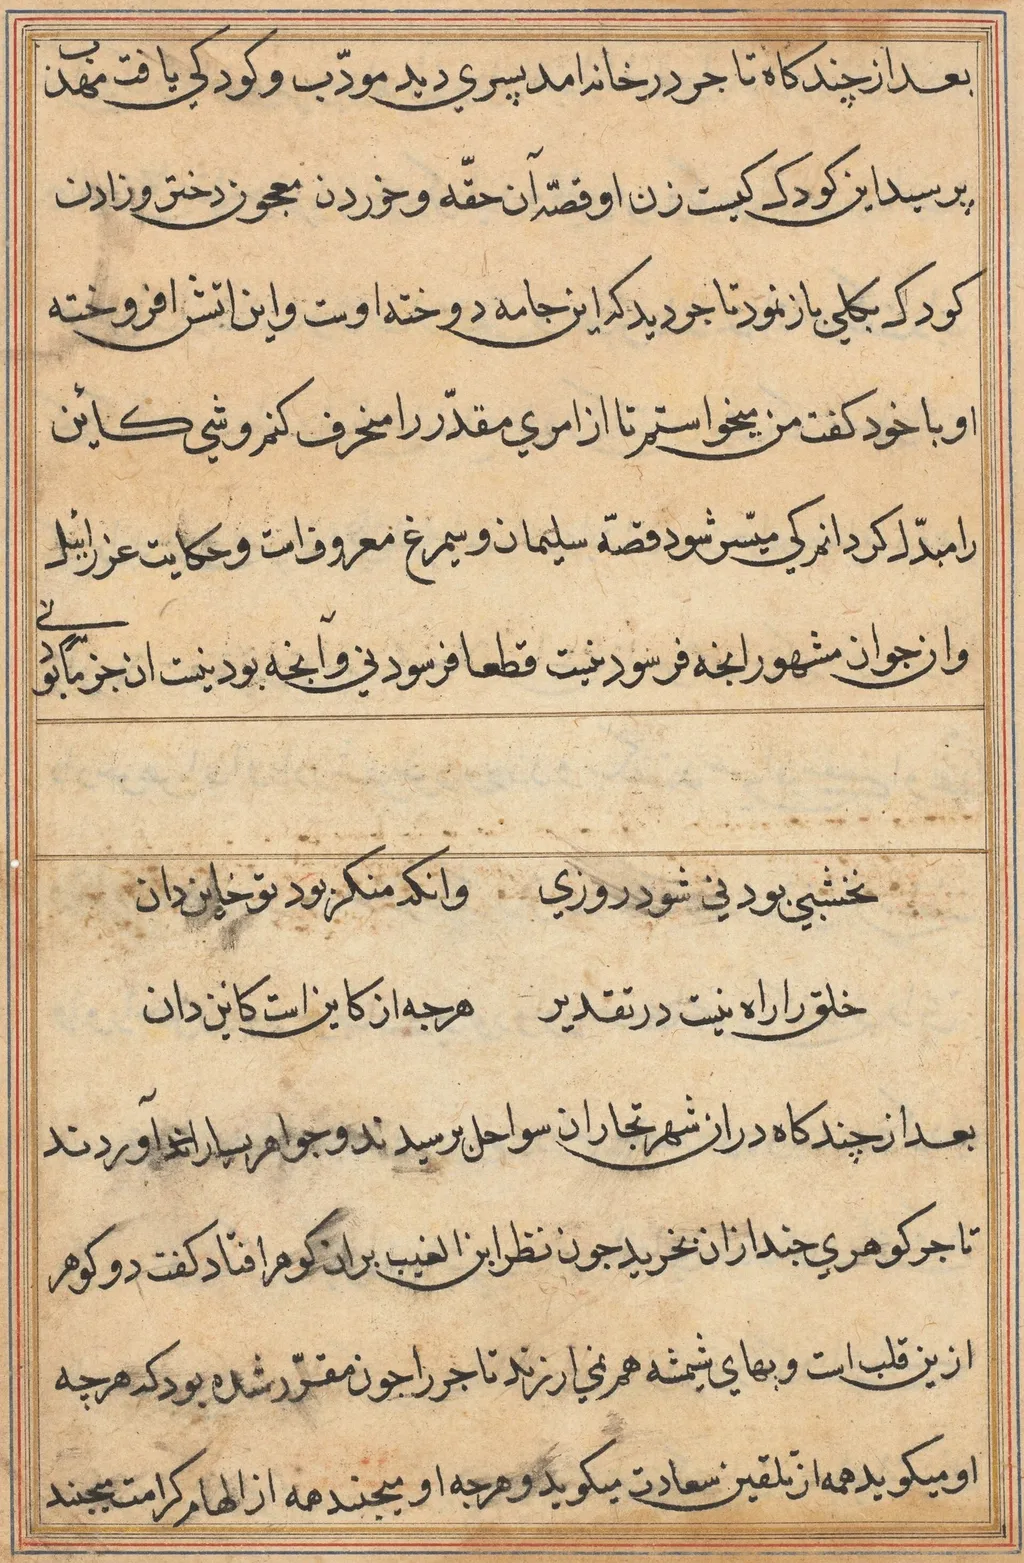 بعد از چند کاه تا جر در خانه امد پسري دید مودّب و کودکي یافت مهذب
پرسید این کودک کیست زن او قصّه آن حقّه و خوردن معجون دختر و زادن
کودک بکلي باز نمود تا جر دید که این جامه دوخته اوست و این اتش افروخته
او با خود کفت من میخواستم تا از امري مقدّر را منحرف کنم و شي کــائن
را مبدّل کردانم کي میسّر شود قصّه سلیمان و سیمرغ معروف است و حکایت عزرائیل
و ان جوان مشهور انجه فرسود نیست قطعا فرسودني و آنجه بود نیست ان جز
نخشبي بودني شود روزي وانکه منکر بود تو خاین دان
خلق را راه نیست در تقدیر هرجه از کاین است کائن دان
بعد از چند کاه در ان شهر تجاران سواحل برسیدند و جواهر بسیار آوردند
تا جر کوهري چند ازان بخرید جون نظر ابن الغیب بران کوهر افتاد کفت دو کوهر
ازین قلب است و بهاي شیمشه هم نمي ارزند تا جر را جون مقرّر شده بود که هرچه
او میکوید همه از تلقین سعادت میکوید و هرجه او میجنبد همه از الهام کرامت میجنبد